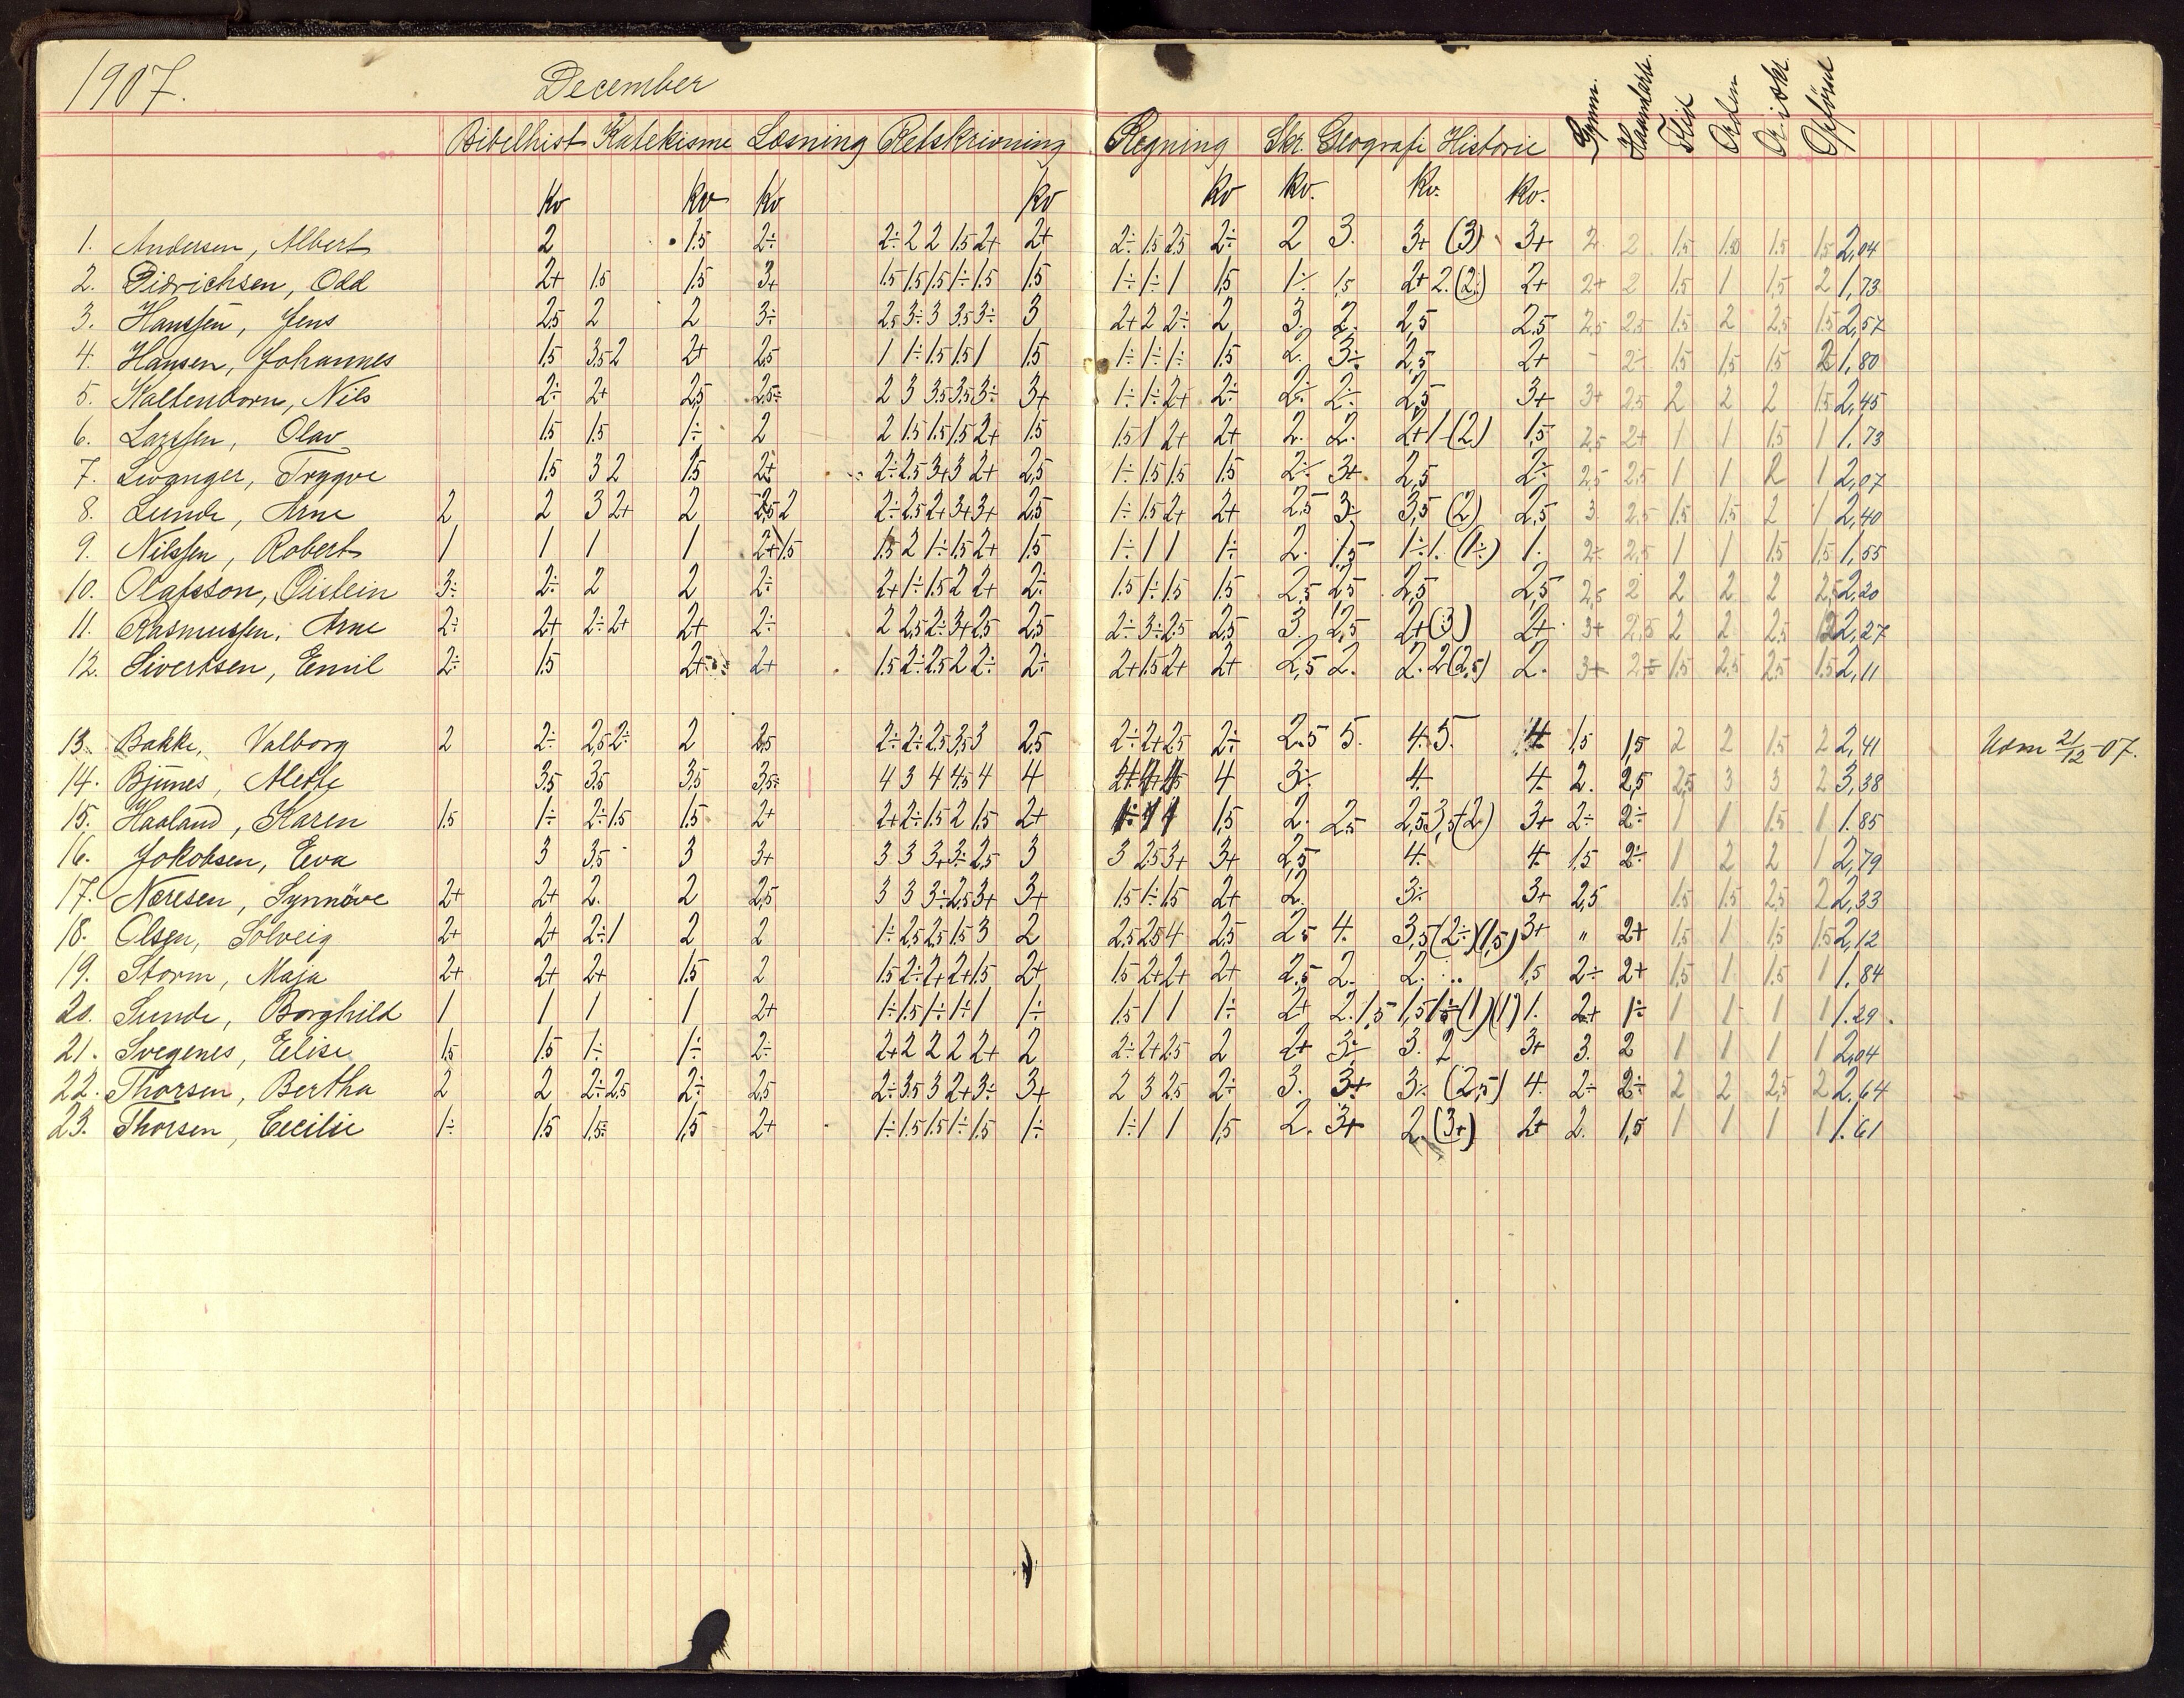 1907. December
Bibelhist Katekisme Læsning Retskrivning Regning Skr. Geografi Historie Gymn. Haandarb. Flid Orden Or. i skr. Opförsel
kv kv kv kv kv kv. kv. kv.
1. Andersen, Albert 2 1.5 2÷ 2÷ 2 2 1.5 2+ 2+ 2÷ 1.5 2.5 2÷ 2 3. 3+ (3) 3+ 2. 2 1.5 1.5 1.5 1.5 2,04
2. Didrichsen, Odd 2+ 1.5 1.5 3+ 1.5 1.5 1.5 1÷ 1.5 1.5 1÷ 1÷ 1 1.5 1÷ 1,5 2+ 2. (2÷) 2+ 2+ 2 1.5 1 1,5 2 1,73
3. Hanssen, Jens 2.5 2 2 3÷ 2.5 3÷ 3 3.5 3÷ 3 2+ 2 2÷ 2 3. 2. 2,5 2.5 2,5 2.5 1.5 2 2,5 1.5 2,57
4. Hansen, Johannes 1.5 3.5 2 2+ 2.5 1 1÷ 1.5 1.5 1 1.5 1÷ 1÷ 1÷ 1.5 2. 3÷ 2,5 2+ - 2÷ 1.5 1,5 1.5 2 1,80
5. Kaltenborn, Nils 2÷ 2+ 2,5 2.5÷ 2 3 3.5 3.5 3÷ 3+ 1÷ 1÷ 2+ 2÷ 2÷ 2÷ 2,5 3+ 3+ 2.5 2 2 2 1.5 2,45
6. Larssen, Olav 1.5 1.5 1÷ 2 2 1.5 1.5 1.5 2+ 1.5 1.5 1 2+ 2+ 2. 2. 2+ 1 (2) 1,5 2,5 2+ 1 1 1.5 1 1.73
7. Levanger, Trygve 1.5 3 2 1.5 2+ 2÷ 2.5 3+ 3 2+ 2,5 1÷ 1.5 1.5 1.5 2÷ 3+ 2,5 2÷ 2.5 2.5 1 1 2 1 2,07
8. Lunde, Arne 2 2 3 2+ 2 2,5 2 2÷ 2.5 2+ 3+ 3+ 2.5 1÷ 1.5 2+ 2+ 2.5 3÷ 3,5 (2) 2,5 3. 2.5 1.5 1.5 2 1 2,40
9. Nilssen, Robert 1 1 1 1 2+ 1.5 1.5 2 1÷ 1.5 2+ 1.5 1÷ 1 1 1÷ 2. 1,5 1÷ 1. (1÷) 1. 2÷ 2.5 1 1 1.5 1,5 1,55
10. Olafsson, Øistein 3÷ 2÷ 2 2 2÷ 2+ 1÷ 1.5 2 2+ 2÷ 1.5 1÷ 1.5 1.5 2,5 2.5 2,5 2,5 2,5 2 2 2 2 2,5 2,20
11. Rasmussen, Arne 2÷ 2+ 2÷ 2+ 2+ 2÷ 2 2.5 2÷ 3+ 2.5 2,5 2÷ 3÷ 2.5 2.5 3. 2,5 2+ (3) 2+ 3+ 2,5 2 2 2.5 2 2,27
12. Sivertsen, Emil 2÷ 1.5 2+ 2+ 1.5 2÷ 2.5 2 2÷ 2÷ 2+ 1.5 2+ 2+ 2,5 2. 2. 2 (2,5) 2. 3+ 2÷ 1.5 2,5 2.5 1.5 2,11
13. Bakke, Valborg 2 2÷ 2,5 2÷ 2 2,5 2÷ 2÷ 2.5 3,5 3 2.5 2÷ 2+ 2.5 2÷ 2.5 5. 4. 5. 4. 1,5 1,5 2 2 1.5 2 2,41 Udm 21/12 - 07.
14. Bjünes, Mette 3.5 3.5 3.5 3,5÷ 4 3 4 4.5 4 4 4 3÷ 4. 4. 2. 2,5 2.5 3 3 2 3,38
15. Haaland, Karen 1.5 1÷ 2÷ 1.5 1.5 2+ 2+ 2÷ 1.5 2 1.5 2+ 1÷ 1 1 1,5 2. 2.5 2,5 3,5 (2) 3+ 2÷ 2÷ 1 1 1.5 1 1.85
16. Jakobsen, Eva 3 3,5 3 3+ 3 3 3+ 3÷ 2,5 3 3 2.5 3+ 3+ 2,5 4. 4. 1,5 2÷ 1 2 2 1 2,79
17. Næresen, Synnöve 2+ 2+ 2. 2 2,5 3 3 3÷ 2,5 3+ 3+ 1.5 1÷ 1.5 2+ 2. 3÷ 3+ 2,5 1.5 1.5 2,5 2 2,33
18. Olsen, Solveig 2+ 2+ 2÷ 1 2 2 1÷ 2,5 2,5 1.5 3 2 2,5 2,5 4 2.5 2.5 4. 3,5 (2÷) (1,5) 3+ „ 2+ 1,5 1 1,5 1.5 2,12
19. Storm, Maja 2+ 2+ 2+ 1.5 2 1.5 2÷ 2+ 2+ 1.5 2+ 1.5 2+ 2+ 2+ 2.5 2. 2. 1,5 2÷ 2+ 1,5 1 1.5 1 1.84
20. Sunde, Borghild 1 1 1 1 2+ 1÷ 1.5 1÷ 1÷ 1 1÷ 1.5 1 1 1÷ 2+ 2. 1,5 1,5 1,5÷ (1) (1) 1. 2+ 1÷ 1 1 1 1 1.29
21. Svegenes, Elise 1.5 1.5 1÷ 1÷ 2÷ 2+ 2 2 2 2+ 2 2÷ 2+ 2.5 2 2+ 3÷ 3. 2 3+ 3. 2 1 1 1 1 2,04
22. Thorsen, Bertha 2 2 2÷ 2.5 2÷ 2,5 2÷ 3.5 3 2+ 3÷ 3+ 2 3 2.5 2÷ 3. 3+ 3÷ (2,5) 4. 2÷ 2÷ 2 2 2,5 2 2,64
23. Thorsen, Cecilie 1÷ 1.5 1,5÷ 1,5 2+ 1÷ 1.5 1.5 1÷ 1.5 1÷ 1÷ 1 1 1,5 2. 3+ 2. (3+) 2+ 2. 1,5 1 1 1 1 1.61